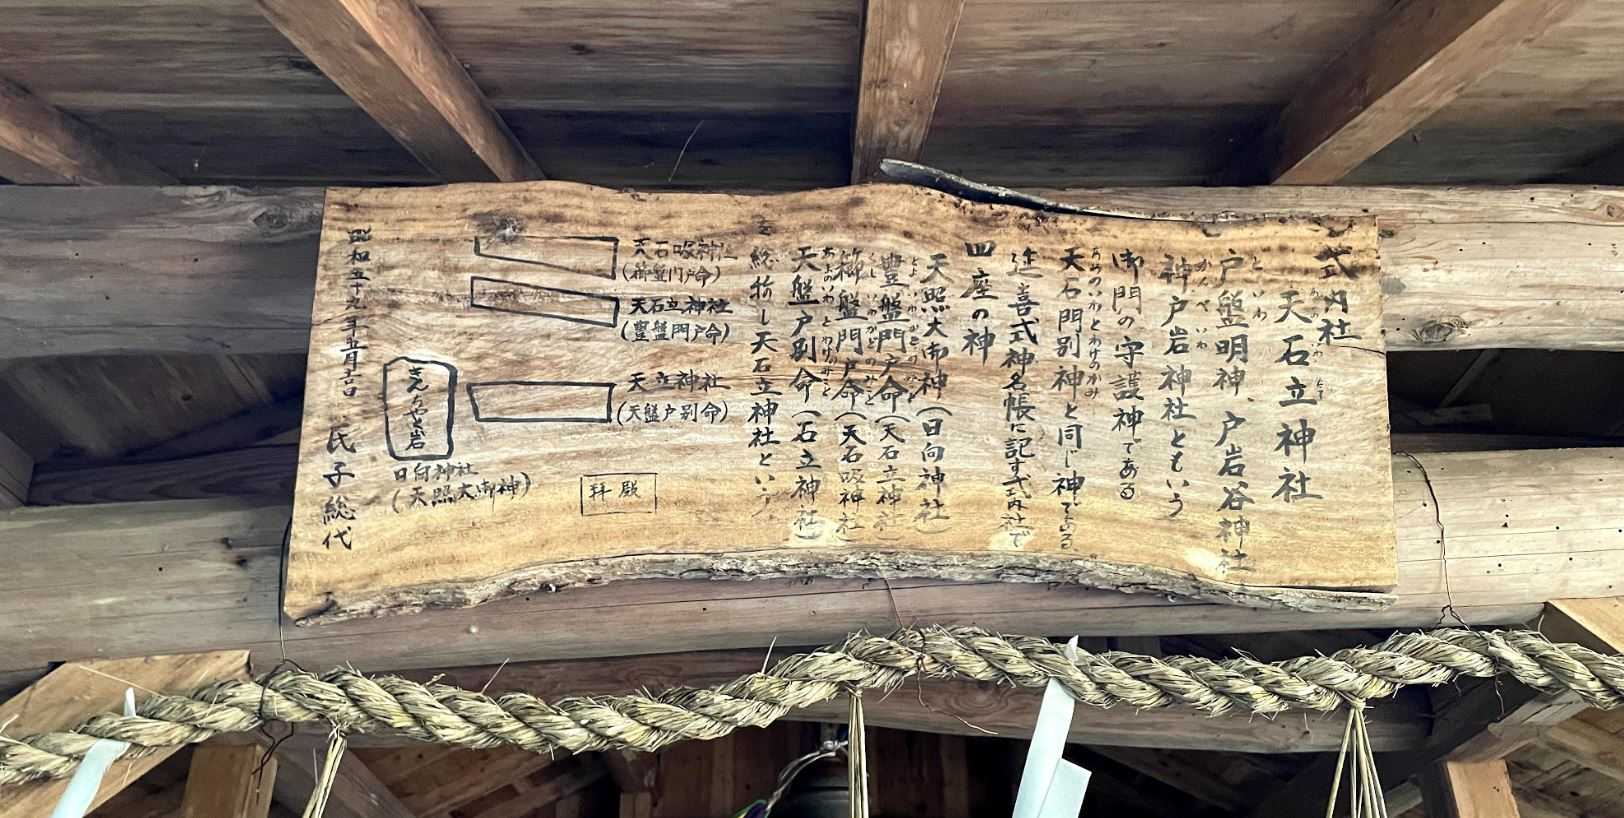 式内社
天石立神社
戸盤明神、戸岩谷神社
神戸岩神社ともいう
御門の守護神である
天石門別神と同じ神である
延喜式神名帳に記す式内社で
四座の神
天照大御神(日向神社)
豊盤門戸命(天石立神社)
櫛盤門戸命(天石吸神社)
天盤戸別命(石立神社)
を
総称し天石立神社という
天石吸神社
(櫛盤門戸命)
天石立神社
(豊盤門戸命)
天立神社
(天盤戸別命)
拝殿
きんちゃく岩
日向神社
(天照大御神)
昭和五十九年五月吉日
氏子総代